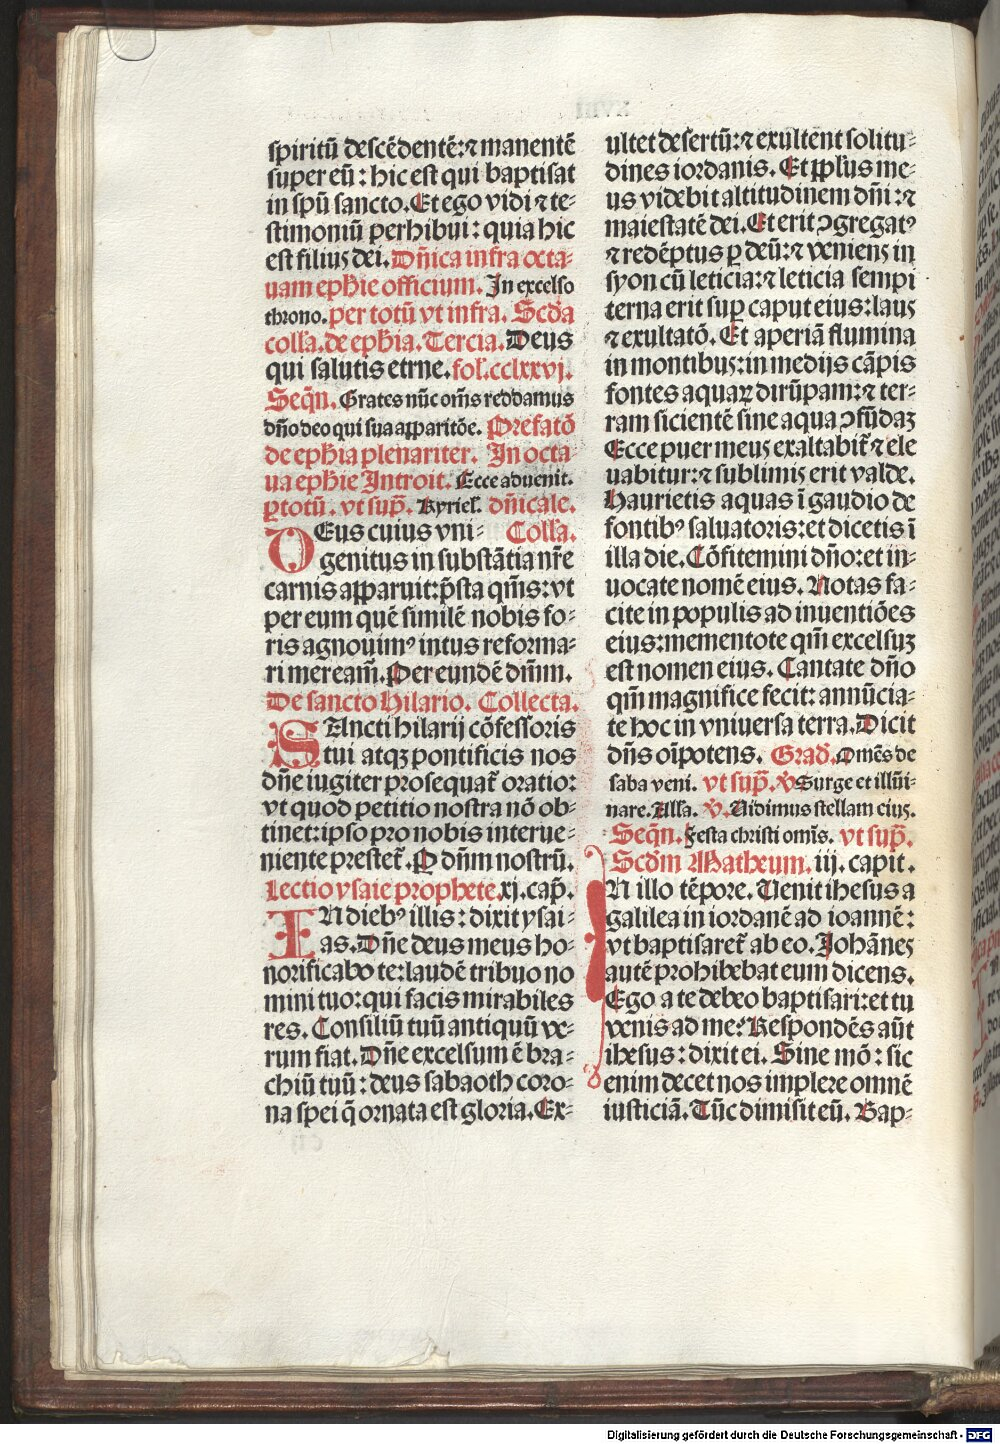 spiritū descēdentē: ⁊ manentē
super eū : hic est qui baptisat
in spū sancto. Et ego vidi ⁊ te⸗
stimoniū perhibui: quia hic
est filius dei. Dn̄ica infra octa⸗
uam eph̄ie officium. In excelso
throno. per totū vt infra. Scd̄a
coll̄a. de eph̄ia. Tercia. Deus
qui salutis etrne. fol. cclxxvj.
Seqn̄. Grates nūc om̄s reddamus
dn̄o deo qui sua apparitōe. Prefatō
de eph̄ia plenariter. In octa
ua eph̄ie Introit. Ecce aduenit.
ꝑ totū. vt sup̄. Kyriel̄. dn̄icale.
DEus cuius vni⸗ Coll̄a.
genitus in substātia nr̄e
carnis apparuit: p̄sta qm̄s: vt
per eum quē similē nobis fo⸗
ris agnouimꝰ intus reforma⸗
ri meream̄. Per eundē dn̄m.
De sancto Hilario. Collecta.
SAncti hilarij cōfessoris
tui atqꝫ pontificis nos
dn̄e iugiter prosequat̄ oratio:
vt quod petitio nostra nō ob⸗
tinet: ipso pro nobis interue⸗
niente prestet̄. P dn̄m nostrū.
Lectio ysaie prophete. xj. cap̄.
IN diebꝰ illis : dixit ysai⸗
as. Dn̄e deus meus ho⸗
norificabo te: laudē tribuo no
mini tuo: qui facis mirabiles
res. Consiliū tuū antiquū ve⸗
rum fiat. Dn̄e excelsum ē bra⸗
chiū tuū : deus sabaoth coro⸗
na spei q̄ ornata est gloria. Ex⸗
ultet desertū: ⁊ exultent solitu⸗
dines iordanis. Et ppl̄us me⸗
us videbit altitudinem dn̄i : ⁊
maiestatē dei. Et erit ↄgregatꝰ
⁊ redēptus ꝑ deū: ⁊ veniens in
syon cū leticia: ⁊ leticia sempi
terna erit sup̄ caput eius: laus
⁊ exultatō. Et aperiā flumina
in montibus: in medijs cāpis
fontes aquaꝝ dirūpam: ⁊ ter⸗
ram sicientē sine aqua ↄfūdaꝫ
Ecce puer meus exaltabit̄ ⁊ ele
uabitur: ⁊ sublimis erit valde.
Haurietis aquas ī gaudio de
fontibꝰ saluatoris: et dicetis ī
illa die. Cōfitemini dn̄o: et in⸗
uocate nomē eius. Notas fa⸗
cite in populis ad inuentiōes
eius: mementote qm̄ excelsuꝫ
est nomen eius. Cantate dn̄o
qm̄ magnifice fecit: annūcia⸗
te hoc in vniuersa terra. Dicit
dn̄s oīpotens. Grad̄. Omēs de
saba veni. vt sup̄. ℣ Surge et illūi⸗
nare. All̄a. ℣. Uidimus stellam eius.
Seqn̄. Festa christi omīs. vt sup̄.
Scd̄m Matheum. iij. capit.
IN illo tēpore. Uenit ihesus a
galilea in iordanē ad ioannē:
vt baptisaret̄ ab eo. Johānes
autē prohibebat eum dicens.
Ego a te debeo baptisari: et tu
venis ad me? Respondēs aūt
ihesus : dixit ei. Sine mō : sic
enim decet nos implere omnē
iusticiā. Tūc dimisit eū. Bap⸗
Digitalisierung gefördert durch die Deutsche Forschungsgemeinschaft - DFG